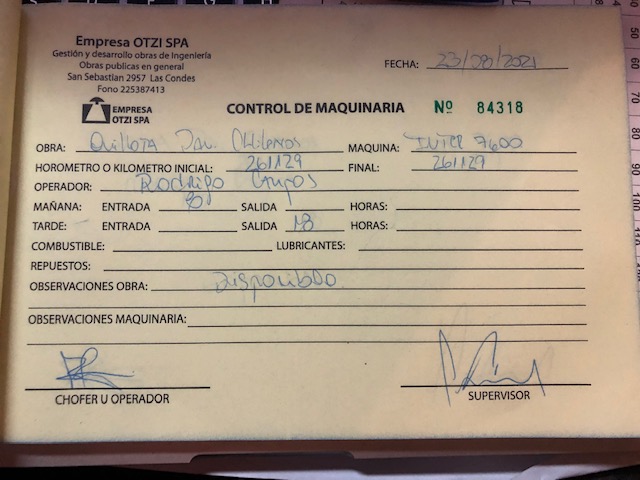 Empresa OTZI SPA
Gestión y desarrollo obras de Ingeniería
Obras publicas en general
San Sebastian 2957 Las Condes
Fono 225387413
FECHA: 23/09/2021
EMPRESA
OTZI SPA
CONTROL DE MAQUINARIA Nº 84318
OBRA: Quillota MAQUINA: Inter 7600
HOROMETRO O KILOMETRO INICIAL: 261129 FINAL: 261129
OPERADOR: Rodrigo Campos
MAÑANA: ENTRADA 08 SALIDA HORAS:
TARDE: ENTRADA SALIDA 18 HORAS:
COMBUSTIBLE: LUBRICANTES:
REPUESTOS:
OBSERVACIONES OBRA: Disponible
OBSERVACIONES MAQUINARIA:
CHOFER U OPERADOR SUPERVISOR
50
60
70
80
90
100
110